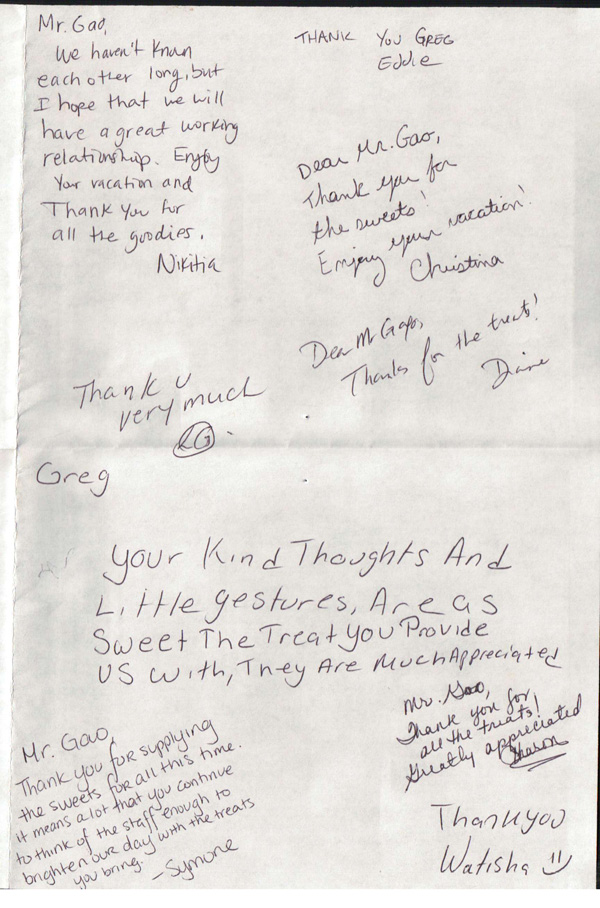 Mr. Gao,
We haven't known
each other long, but
I hope that we will
have a great working
relationship. Enjoy
Your vacation and
Thank You for
all the goodies.
Nikitia
THANK YOU GREG
Eddie
Dear Mr. Gao,
Thank you for
the sweets!
Enjoy your vacation!
Christina
Dear Mr Gao,
Thanks for the treats!
Diane
Thank u
very much
RG.
Greg
Your Kind Thoughts And
Little gestures, Are as
Sweet The Treat You Provide
US With, They Are Much Appreciated
Mr. Gao,
Thank you for
all the treats!
Greatly appreciated
Sharon
Mr. Gao,
Thank you for supplying
the sweets for all this time.
it means a lot that you continue
to think of the staff enough to
brighten our day with the treats
you bring. -Symone
Thank you
Watisha